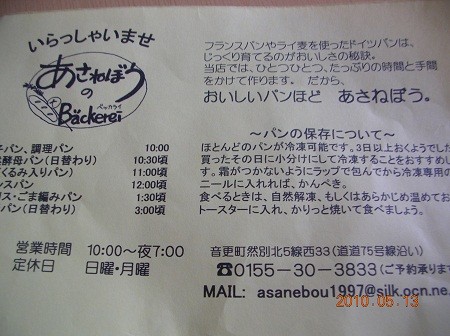 いらっしゃいませ
あさねぼう
の
ベッカライ
Bäckerei
フランスパンやライ麦を使ったドイツパンは、
じっくり育てるのがおいしさの秘訣。
当店では、ひとつひとつ、たっぷりの時間と手間
をかけて作ります。 だから、
おいしいパンほど あさねぼう。
パン、調理パン 10:00
酵母パン(日替わり) 10:30頃
くるみ入りパン) 11:00頃
スパン 12:00頃
リス・ごま編みパン 1:30頃
パン(日替わり) 3:00頃
営業時間 10:00～夜7:00
定休日 日曜・月曜
～パンの保存について～
ほとんどのパンが冷凍可能です。3日以上おくようでした
買ったその日に小分けにして冷凍することをおすすめし
す。霜がつかないようにラップで包んでから冷凍専用の
ニールに入れれば、かんぺき。
食べるときは、自然解凍、もしくはあらかじめ温めてお
トースターに入れ、かりっと焼いて食べましょう。
音更町然別北5線西33(道道75号線沿い)
☎0155-30-3833(ご予約承りま
MAIL: asanebou1997@silk.ocn.ne.
2010.05.13